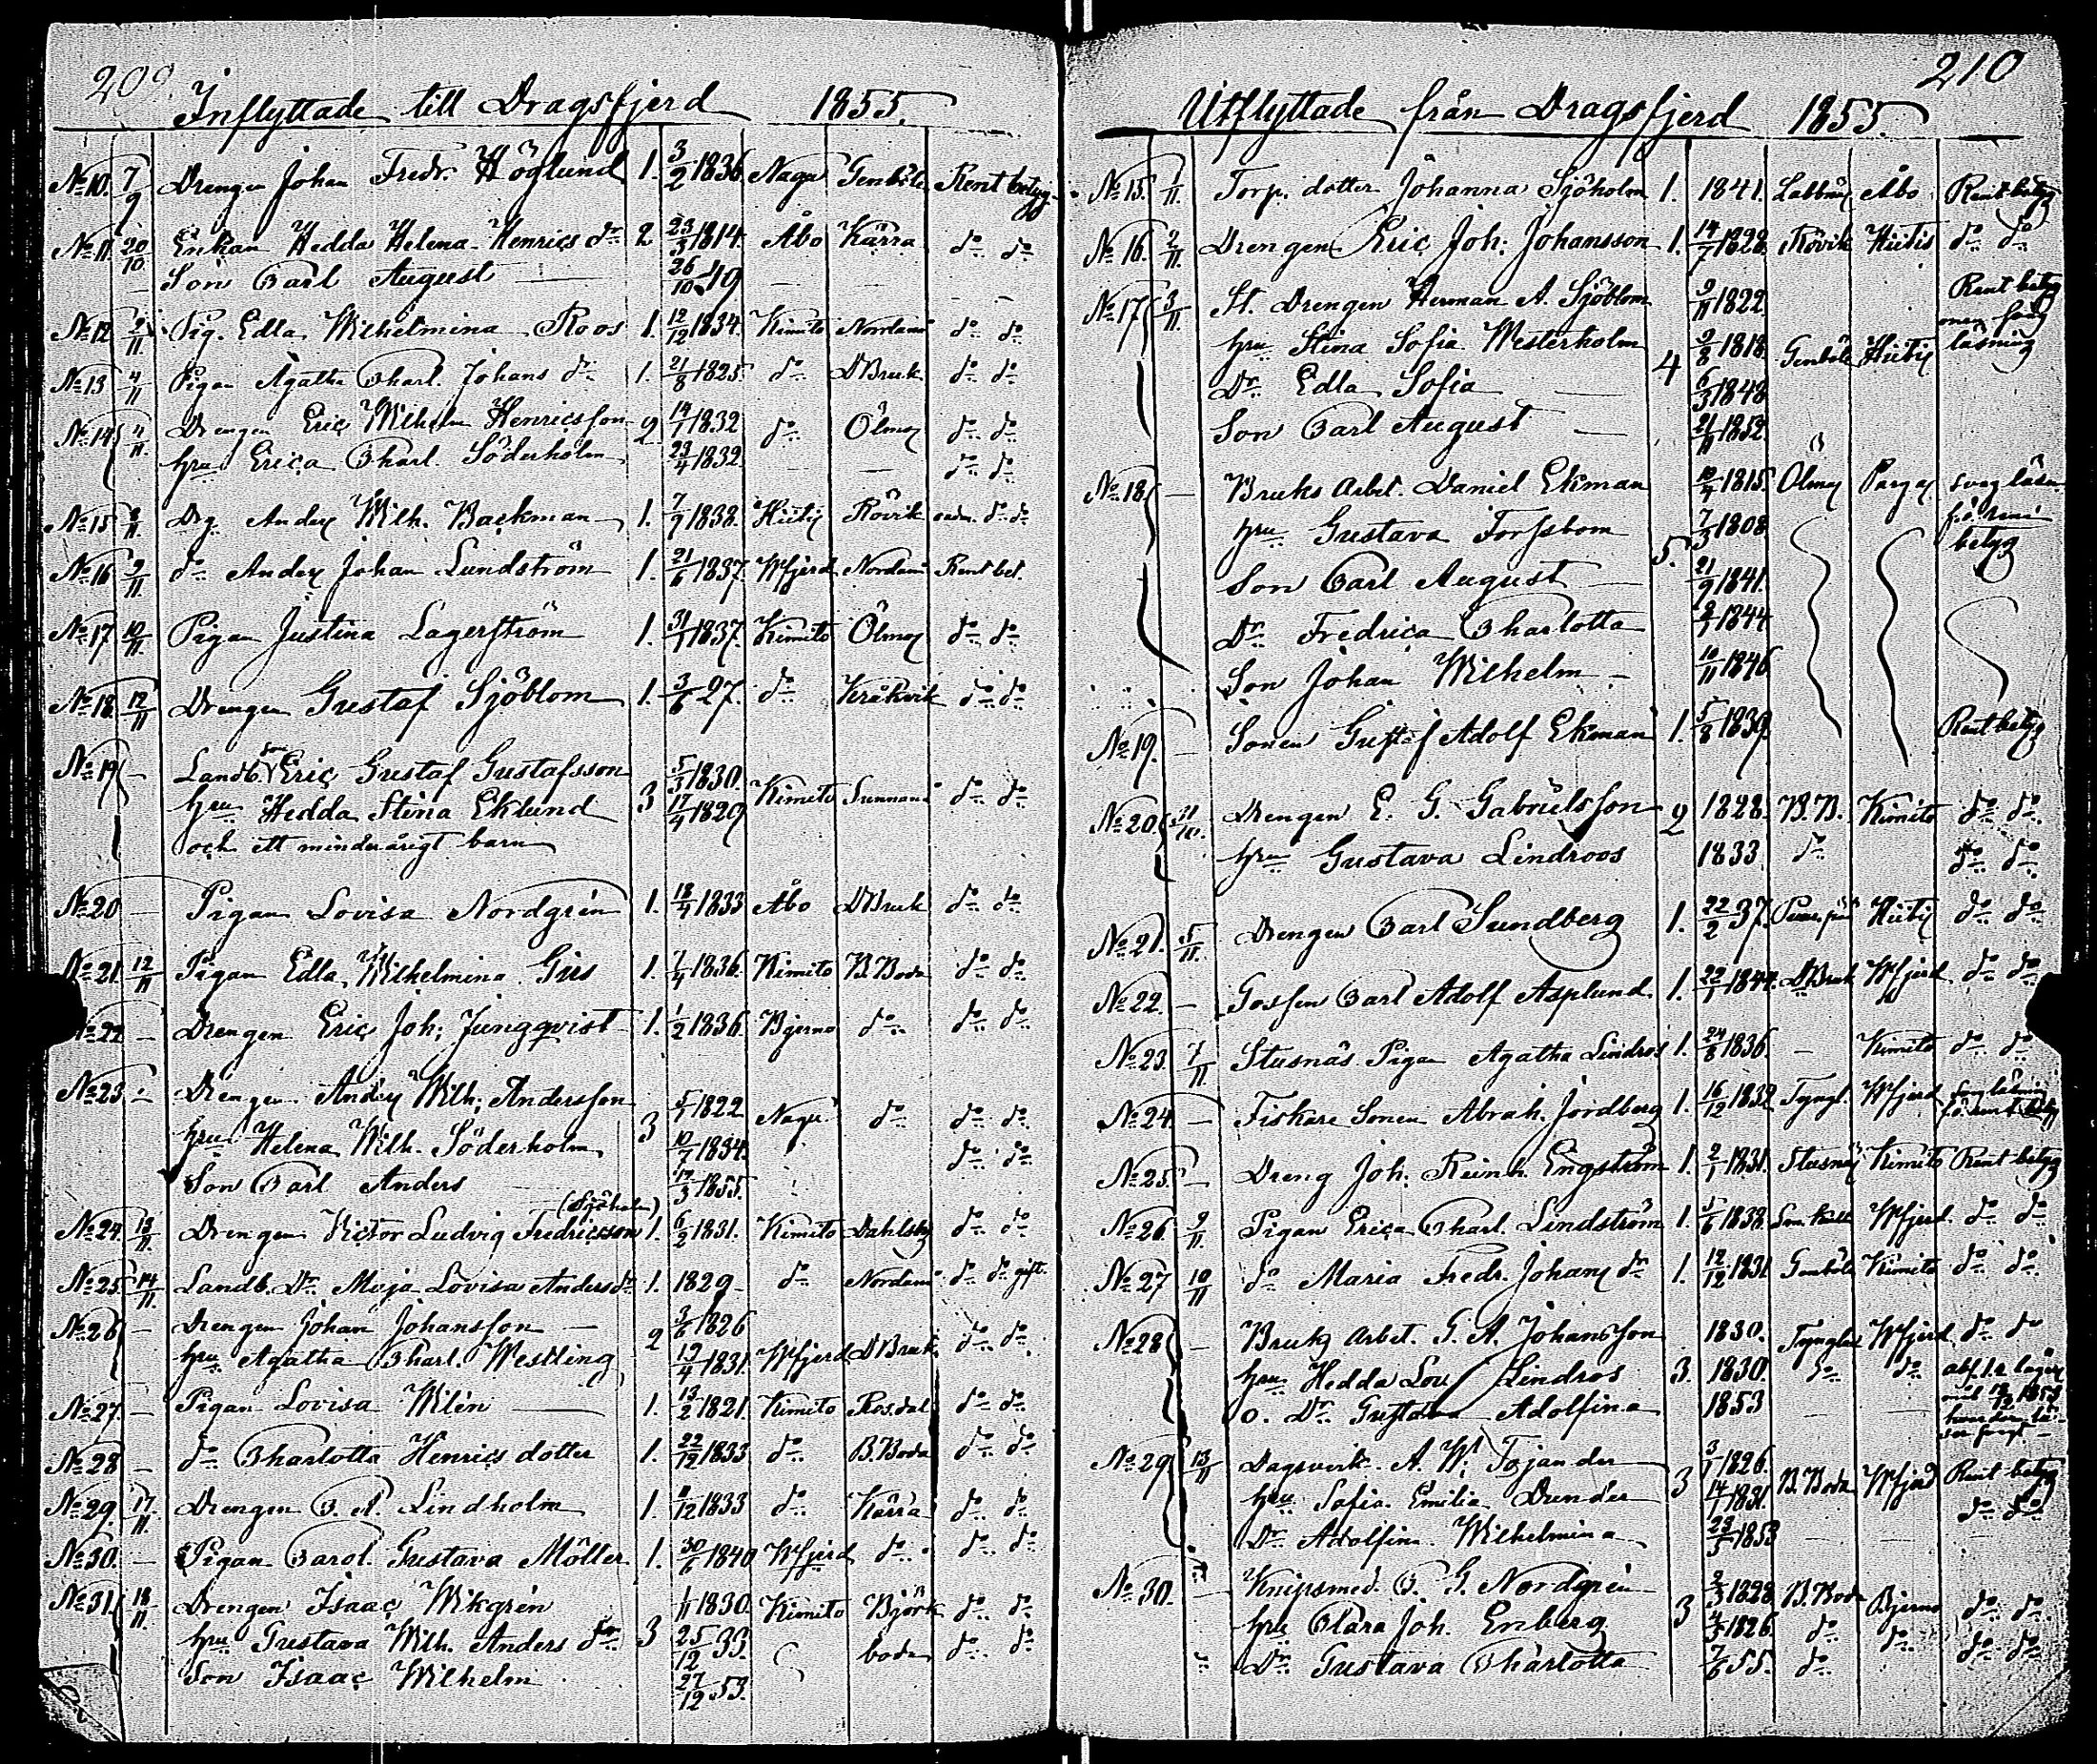 209
Inflyttade till Dragsfjerd 1855.
No 10. 7/9 Drengen Johan Fredr. Höglund 1. 3/2 1836 Nagu Genböle Rent betyg
No 11 20/10 Enkan Hedda Helena Henrics dr 2 23/3 1814 Åbo Kärra do do
Son Carl August 26/10 49
No 12 2/11 Pig. Edla Wilhelmina Roos 1. 12/12 1834. Kimito Nordanå do do
No 13 4/11 Pigan Agatha Charl. Johans dr 1. 21/8 1825 do DBruk do do
No 14 4/11 Drengen Eric Wilhelm Henricsson 2 14/1 1832 do Ölmos do do
hru Erica Charl. Söderholm 23/4 1832. do do
No 15 8/11 Drg. Anders Wilh. Backman 1. 7/9 1838. Hitis Rövik do do
No 16 9/11 do Anders Johan Lundström 1. 21/6 1837 Wfjerd Nordanå Rent bet.
No 17 10/11 Pigan Justina Lagerström 1. 31/1 1837. Kimito Ölmos do do
No 18 12/11 Drengen Gustaf Sjöblom 1. 3/6 27. do Kråkvik do do
No 19 – Landb. son Eric Gustaf Gustafsson 5/3 1830.
hru Hedda Stina Eklund 3 17/4 1829 Kimito Sunnanå do do
och ett minderårigt barn
No 20 – Pigan Lovisa Nordgrén 1. 18/4 1833 Åbo DBruk do do
No 21. 12/11 Pigan Edla Wilhelmina Gris 1. 7/4 1836. Kimito B. Boda do do
No 22 – Drengen Eric Joh. Jungqvist 1. 1/2 1836 Bjerno do do do
No 23 – Drengen Anders Wilh. Andersson 5/1 1822 Nagu do do do
hru Helena Wilh. Söderholm 3 10/7 1834. do do
Son Carl Anders 17/3 1855.
(Sjöholm)
No 24. 13/11 Drengen Victor Ludvig Fredricsson 1. 6/2 1831. Kimito Dahlsby do do
No 25. 14/11 Landb. Dr Maja Lovisa Anders dr 1. 1829 do Nordanå do do gift.
No 26 – Drengen Johan Johansson 2 3/6 1826
hru Agatha Charl. Westling 19/4 1831. Wfjerd DBruk do do
No 27. – Pigan Lovisa Wilén 1. 13/2 1821. Kimito Rosdal do do
No 28 – do Charlotta Henrics dotter 1. 22/12 1833 do B. Boda do do
No 29. 17/11 Drengen C. A. Lindholm 1. /12 1833 do Kärra do do
No 30. – Pigan Carol. Gustava Möller 1. 30/6 1840 Wfjerd do do do
No 31. 18/11 Drengen Isaac Wikgrén 1/11 1830. Kimito Björk do do
hru Gustava Wilh. Anders dr 3 25/12 33. boda do do
Son Isaac Wilhelm 27/12 53.
210
Utflyttade från Dragsfjerd 1855.
No 15. 1/11 Torp. dotter Johanna Sjöholm 1. 1841. Labbnäs Åbo Rent betyg
No 16 2/11 Drengen Eric Joh. Johansson 1. 14/7 1828 Rövik Hiitis do do
No 17 3/11 St. Drengen Herman A. Sjöblom 9/11 1822. Rent betyg
hru Stina Sofia Westerholm 4 9/8 1818 Genböle Hiitis läsning
Dr Edla Sofia 6/3 1848
Son Carl August 21/11 1852.
No 18 – Bruks Arbet. Daniel Ekman 10/7 1815. Ölmos Pargas svag läsn.
hru Gustava Forssbom 5. 7/3 1808. betyg
Son Carl August 21/9 1841.
Dr Fredrica Charlotta 9/1 1844
Son Johan Wilhelm 10/11 1846
No 19. – Sonen Gustaf Adolf Ekman 1. 5/8 1839. Rent betyg
No 20 31/10. Drengen E. G. Gabrielsson 2 1828. B. B. Kimito do do
hru Gustava Lindroos 1833 do do do
No 21. 5/11 Drengen Carl Sundberg 1. 22/2 37. Hitis do do
No 22. – Gossen Carl Adolf Asplund 1. 22/1 1844. DBruk Wfjerd do do
No 23 7/11 Stusnäs Pigan Agatha Lindros 1. 24/8 1836. – Kimito do do
No 24. – Fiskare Sonen Abrah. Jordberg 1. 16/12 1832 Tyngl. Wfjerd
No 25. – Dreng Joh. Reinh. Engström 1. 2/7 1831. Stusnäs Kimito Rent betyg
No 26 9/11 Pigan Erica Charl. Lindström 1. 5/6 1838. Wfjerd do do
No 27 10/11 do Maria Fredr. Johans dr 1. 12/12 1831 Genböle Kimito do do
No 28 – Bruks Arbet. G. A. Johansson 1830. Tynglax Wfjerd do do
hru Hedda Lov. Lindros 3. 1830. do do
o. Dr Gustava Adolfina 1853
No 29 13/11 Dagsverk. A. W. Tojander 3 3/1 1826. B. Boda Wfjerd Rent betyg
hru Sofia Emilia Dunder 14/1 1831. do do
Dr Adolfina Wilhelmina 23/5 1853
No 30. – Knipsmed. C. G. Nordgrén 3 2/3 1828 B. Boda Bjerno do do
hru Clara Joh. Enberg 4/5 1826. do do do do
Dr Gustava Charlotta 7/6 55. do